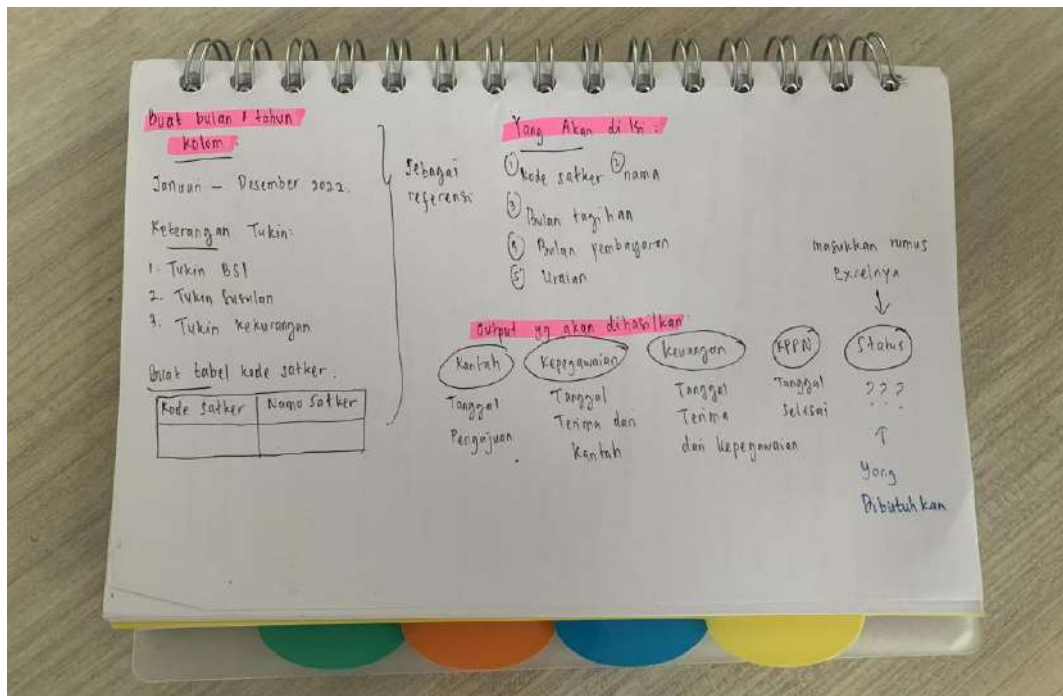 Buat bulan & tahun
kolom :
Januari – Desember 2022.
Keterangan Tukin:
1. Tukin BSI
2. Tukin Susulan
3. Tukin kekurangan
Buat tabel kode satker.
Kode Satker Nama Satker
Sebagai
referensi
Yang Akan di Isi :
① Kode satker ② nama
③ Bulan tagihan
④ Bulan pembayaran
⑤ Uraian
masukkan rumus
Excelnya
Output yg akan dihasilkan:
Kantah Kepegawaian Keuangan KPPN Status
Tanggal
Pengajuan
Tanggal
Terima dari
Kantah
Tanggal
Terima
dari Kepegawaian
Tanggal
Selesai
???
Yang
Dibutuhkan